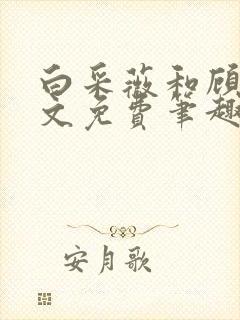 白采薇和顾
文免费笔趣
安月歌